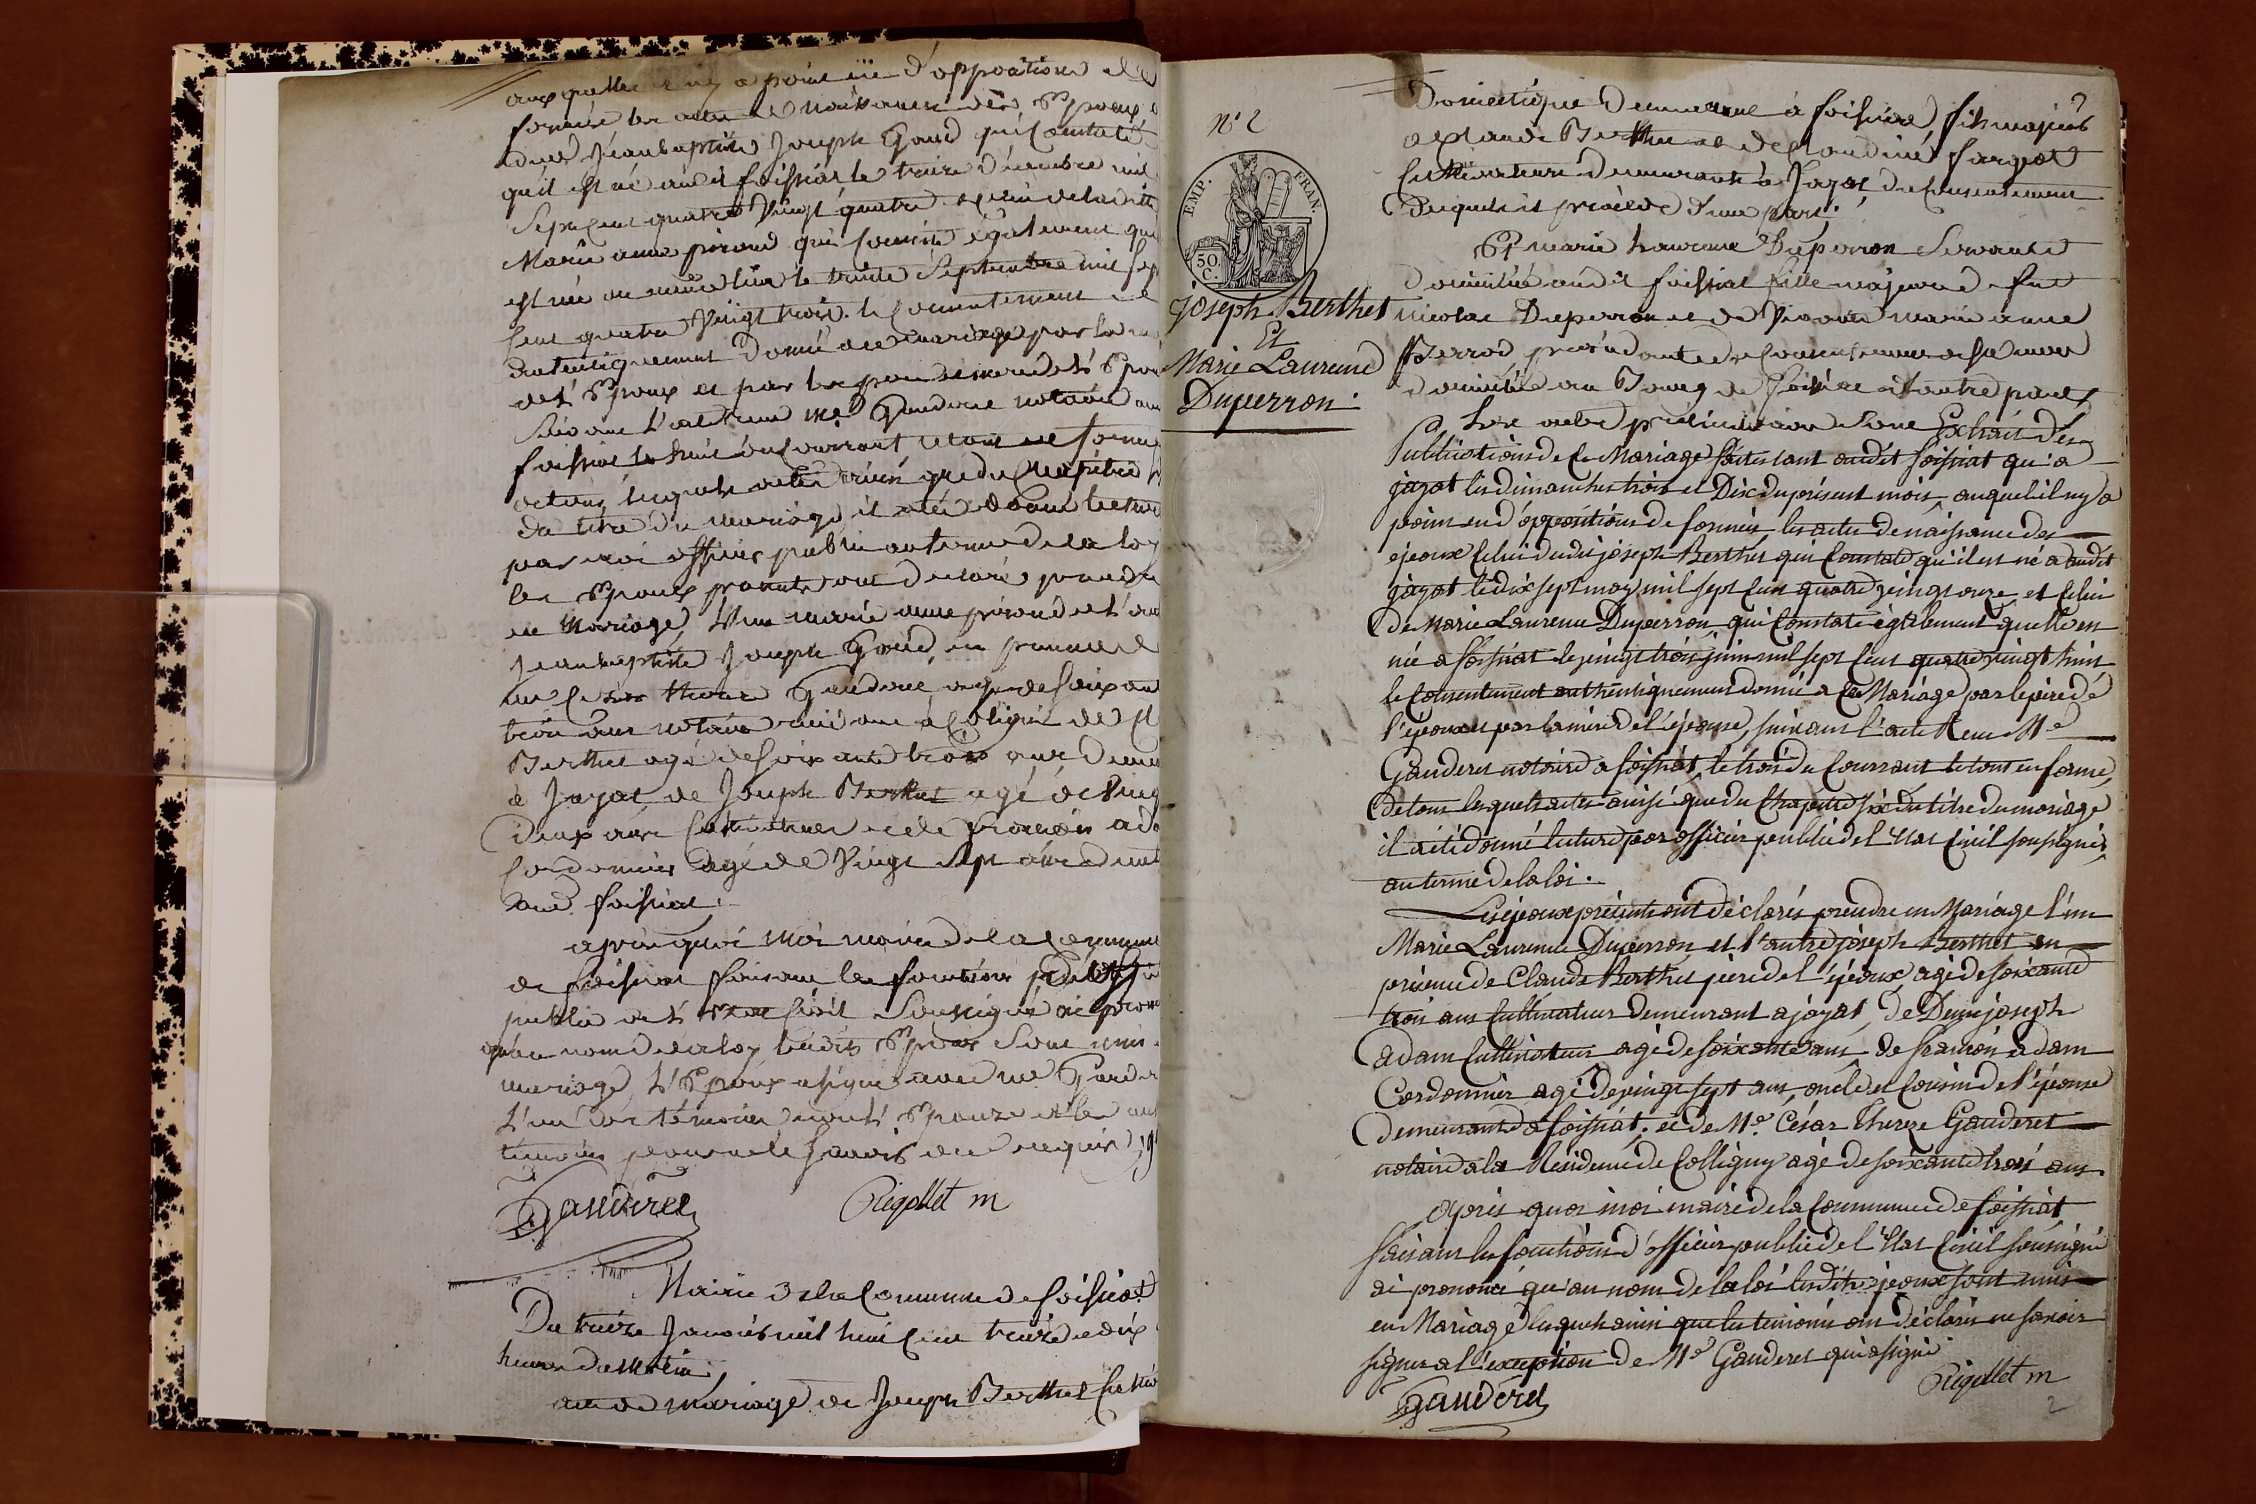 auxquelles il ny a point eü d'opposition
formée les actes de naissance des Epoux
dud. Jeanbaptiste Joseph Goud qui Constate
quil est né audit foissiat le treize décembre mil
Sept Cent quatre Vingt quatre celui de ladite
Marie anne piroud qui Constate également que
est née au même lieu le trente Septembre mil sep
Cent quatre Vingt trois. le Consentement
autentiquement donné a ce mariage par la
de l'Epoux et par les pere et mere de l'Epou
Suivant l'acte reçu Me Gauderet notaire
foissiat le huit du Courrant le tout en forme
desquels actes ainsi que du Chapitre
du titre du mariage il a été donné lecture
par moi officier public au terme de la loy
les Epoux présents ont déclaré prendre
en Mariage L'une marie anne piroud et L'au
Jeanbaptiste Joseph Goud, en présence
me César therese Gauderet agé de soixante
trois ans notaire résidant à Coligni de Cl
Berthet agé de soixante trois ans demeu
à Jayat, de Joseph Berthet agé de Ving
deux ans Cultivateur et de françois ada
Cordonnier agé de Vingt Sept ans demt
aud. foissiat.
après quoi moi maire de la Commune
de foissiat faisant les fonctions d'officier
public de l'Etat Civil Soussigné ai prono
qu'au nom de la loy lesdits Epoux Sont unis
mariage, L'Epoux a signé avec me Gauder
L'un des témoins non L'Epouse et les au
témoins pour ne le Savoir de ce requis
Gauderet Rigollet m
Mairie de la Commune de foissiat
Du treize Janvier mil huit Cent treize a dix
heures du Matin
acte de Mariage de Joseph Berthet Cultiv
2
N° 2
EMP. FRAN.
50
C.
Joseph Berthet
Et
Marie Laurence
Duperron
Domestique demeurant à foissiat fils majeur
a Claude Berthet et de Claudine fargeot
Cultivateurs demeurants à Jayat, du Consentement
desquels il procède d'une part.
Et marie Laurence Duperron Servante
domiciliée audit foissiat fille majeure de fut
nicolas Duperron et de Vivante marie anne
Berrod procédante du Consentement de sa mere
domiciliée au Bourg de foissiat d'autre part
Les actes préliminaires Sont Extrait des
Publications de Ce Mariage faites tant audit foissiat qu'a
jayat les dimanches trois et Dix du présent mois, auquel il ny a
point eu d'oppositions de formées, les actes de naissance des
époux Celui dudit joseph Berthet qui Constate qu'il est né audit
jayat le dix sept may mil sept Cent quatre vingt onze, et Celui
de Marie Laurence Duperron, qui Constate également quelle en
née a foissiat le vingt trois juin mil sept Cent quatre vingt huit
le Consentement authentiquement donné a Ce Mariage par le père de
l'époux et par la mère de l'épouse, suivant l'acte Reçu Me
Gauderet notaire a foissiat, le trois du Courrant le tout en forme,
de tous lesquels actes ainsi que du Chapitre six du titre du mariage
il a été donné lecture par officier public de l'Etat Civil soussigné,
au terme de la loi.
Les époux présents ont déclarés prendre en Mariage l'une
Marie Laurence Duperron et l'autre joseph Berthet en
présence de Claude Berthet père de l'époux, agé de soixante
trois ans Cultivateur demeurant a jayat, de Denis joseph
adam Cultivateur agé de soixante ans, de françois adam
Cordonnier agé de vingt sept ans, oncle et Cousin de l'épouse
demeurants a foissiat. et de Me César Therese Gauderet
notaire a la Résidence de Colligny agé de soixante trois ans.
après quoi moi maire de la Commune de foissiat
faisant les fonctions d'officier public de l'Etat Civil soussigné
ai prononcé qu'au nom de la loi lesdits époux sont unis
en Mariage lesquels ainsi que les témoins ont déclarés ne savoir
signer a l'exception de Me Gauderet qui a signé
Gauderet Rigollet m
2